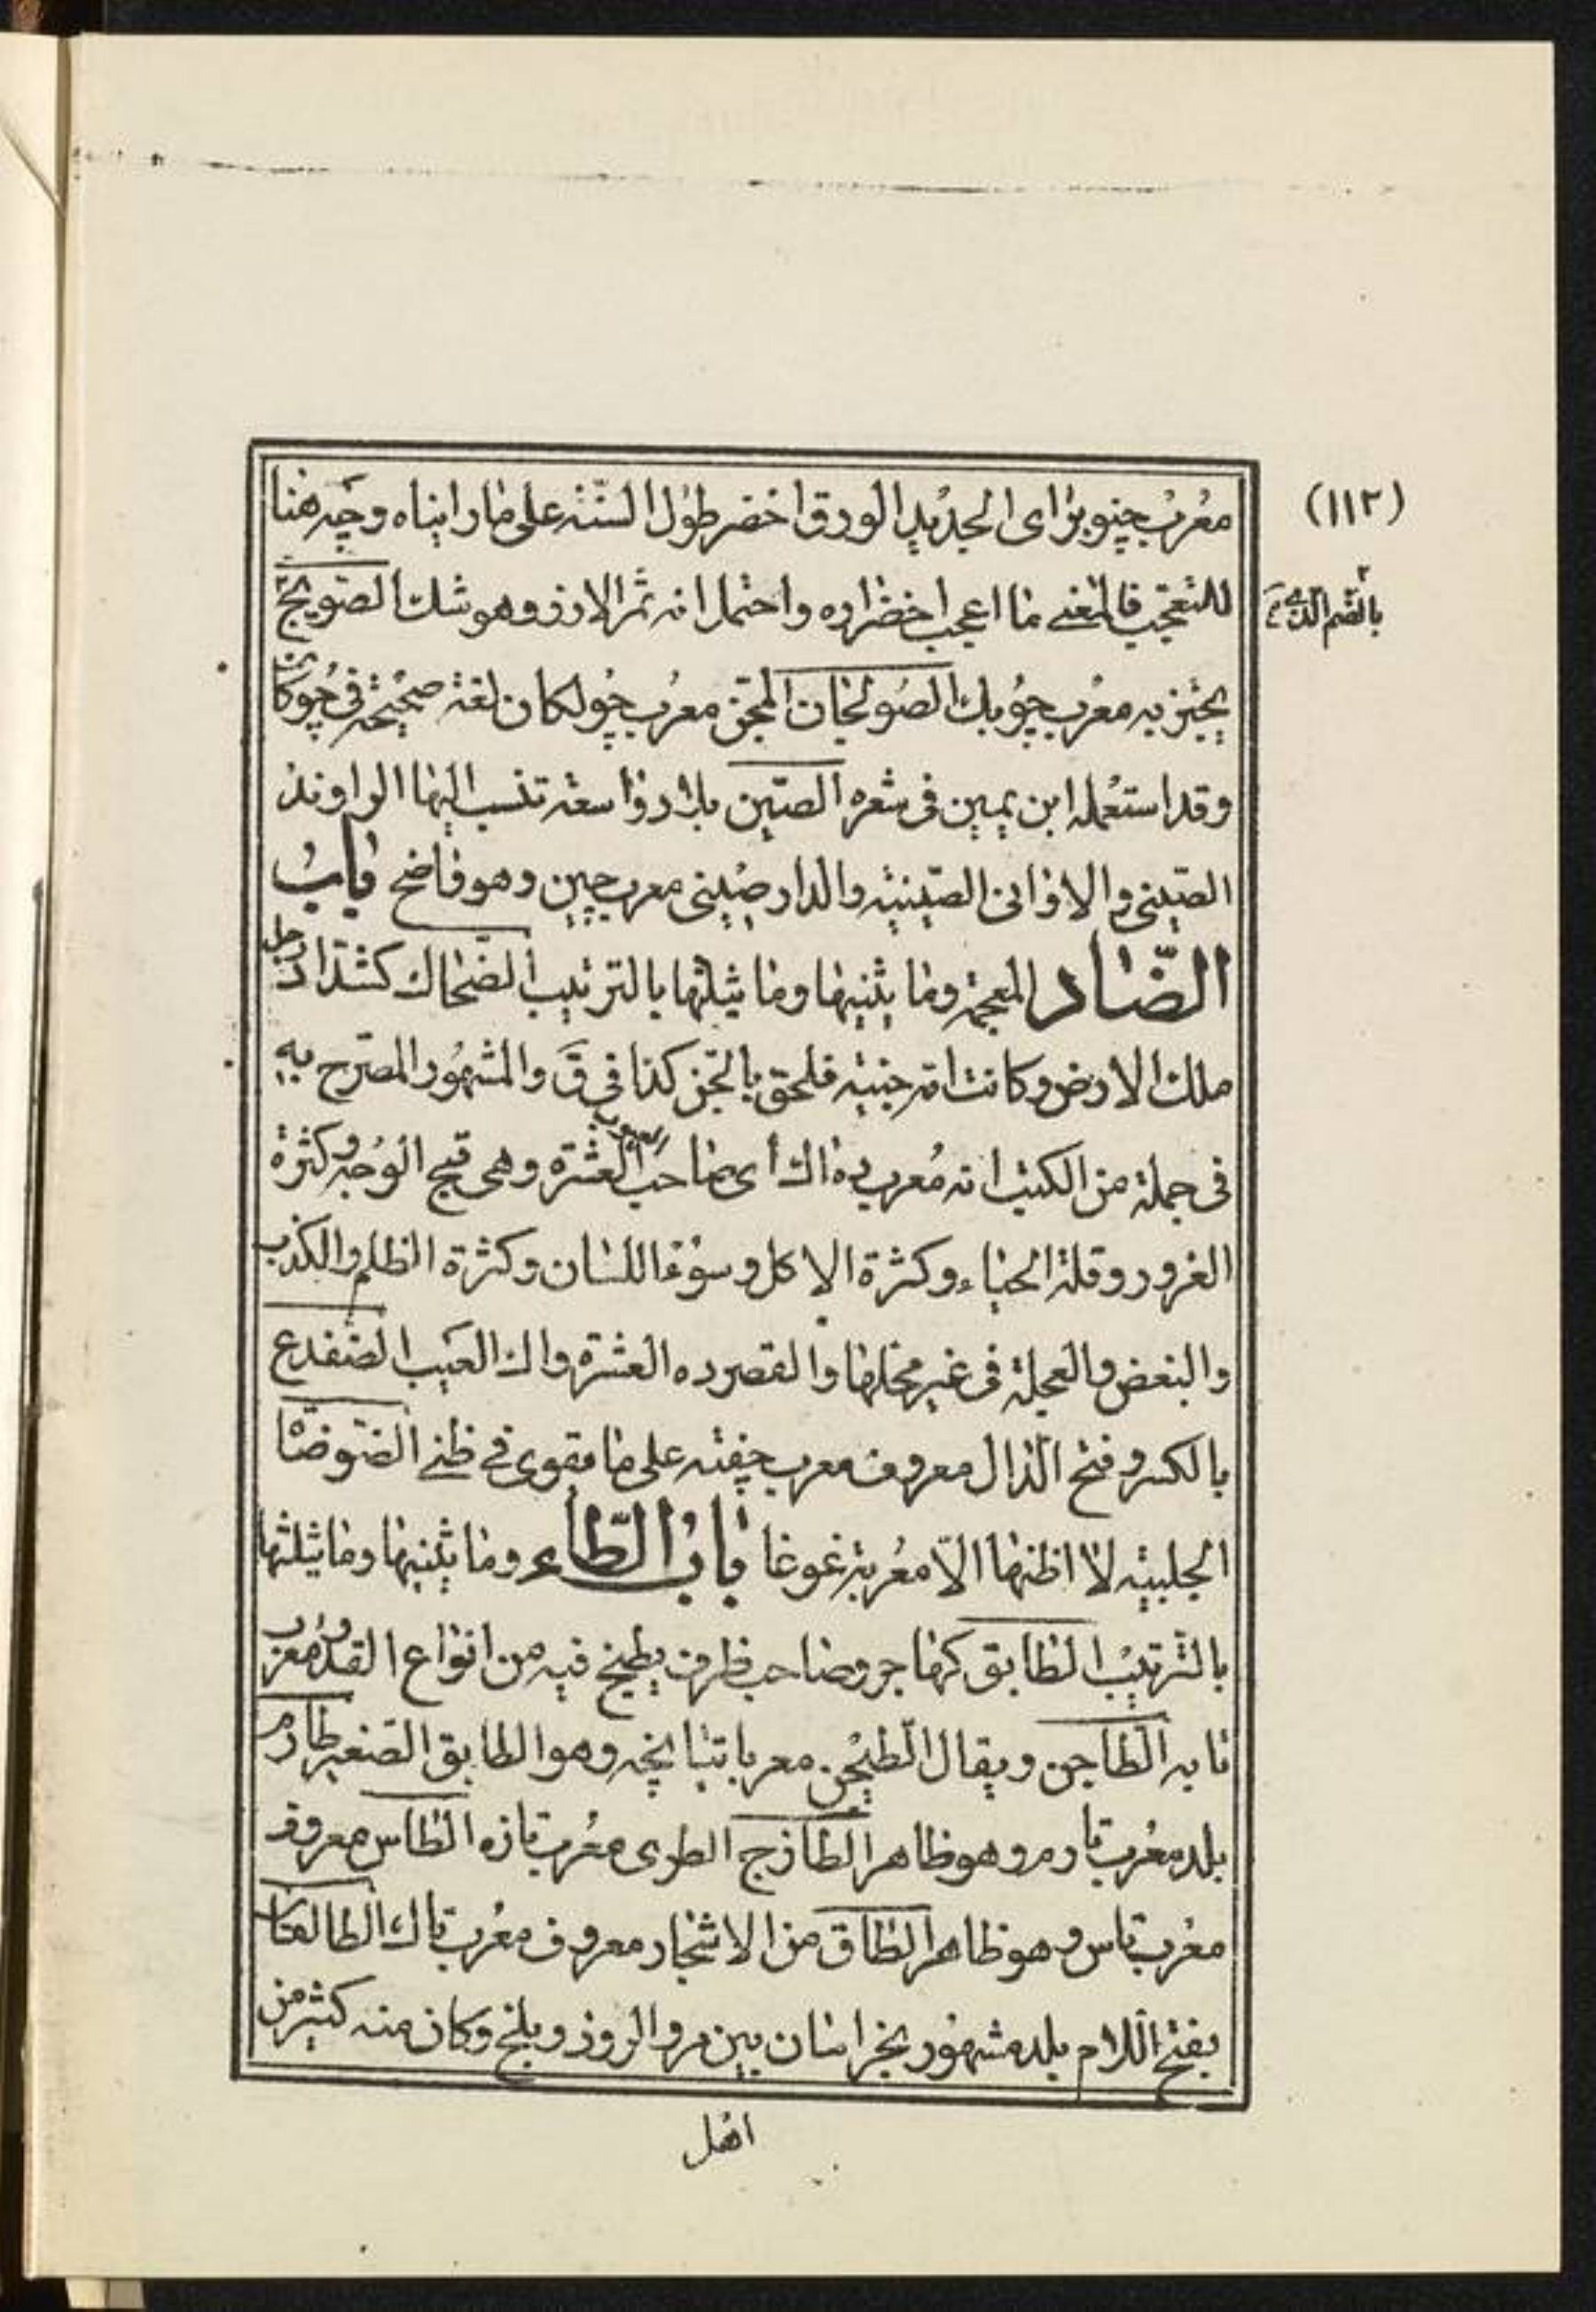 (١١٢)
معرب چنوبر اى الجديد الورق اخضر طول السنة على ما رايناه وچه هنا
للتعجب فالمعنى ما اعجب اخضراره واحتمل انه ثمر الارز وهو شك الصوبج
بالضم الذى
يخبز به معرب چوبك الصولجان المحجن معرب چولكان لغة صحيحة فى چوكان
وقد استعمله ابن يمين فى شعره الصين بلاد واسعة تنسب اليها الراوند
الصينى والاوانى الصينية والدار صينى معرب چين وهو واضح باب
الضاد المعجمة وما يثنيها وما يثلثها بالترتيب الضحاك كشداد رجل
ملك الارض وكانت امه جنية فلحق بالجن كذا فى ق والمشهور المصرح به
فى جملة من الكتب انه معرب ده اك أى صاحب العشرة وهى قبح الوجه وكثرة
الغرور وقلة الحياء وكثرة الاكل وسوء اللسان وكثرة الظلم والكذب
والبغض والعجلة فى غير محلها والقصر وده العشرة واك العيب الضفدع
بالكسر وفتح الدال معروف معرب چفته على ما مقوى فى ظنى الضوضا
الجلبية لا اظنها الا معربة غوغا باب الطاء وما يثنيها وما يثلثها
بالترتيب الطابق كهاجر وصاحب ظرف يطبخ فيه من انواع القدور معرب
تابه الطاجن ويقال الطيجن معربا تيا بچه وهو الطابق الصغير طارم
بلد معرب تا رم وهو ظاهر الطازج الطرى معرب تازه الطاس معروف
معرب تاس وهو ظاهر الطاق من الاشجار معروف معرب تاك الطالقان
بفتح اللام بلد مشهور بخراسان بين مرو الروذ وبلخ وكان منه كثير من
اهل